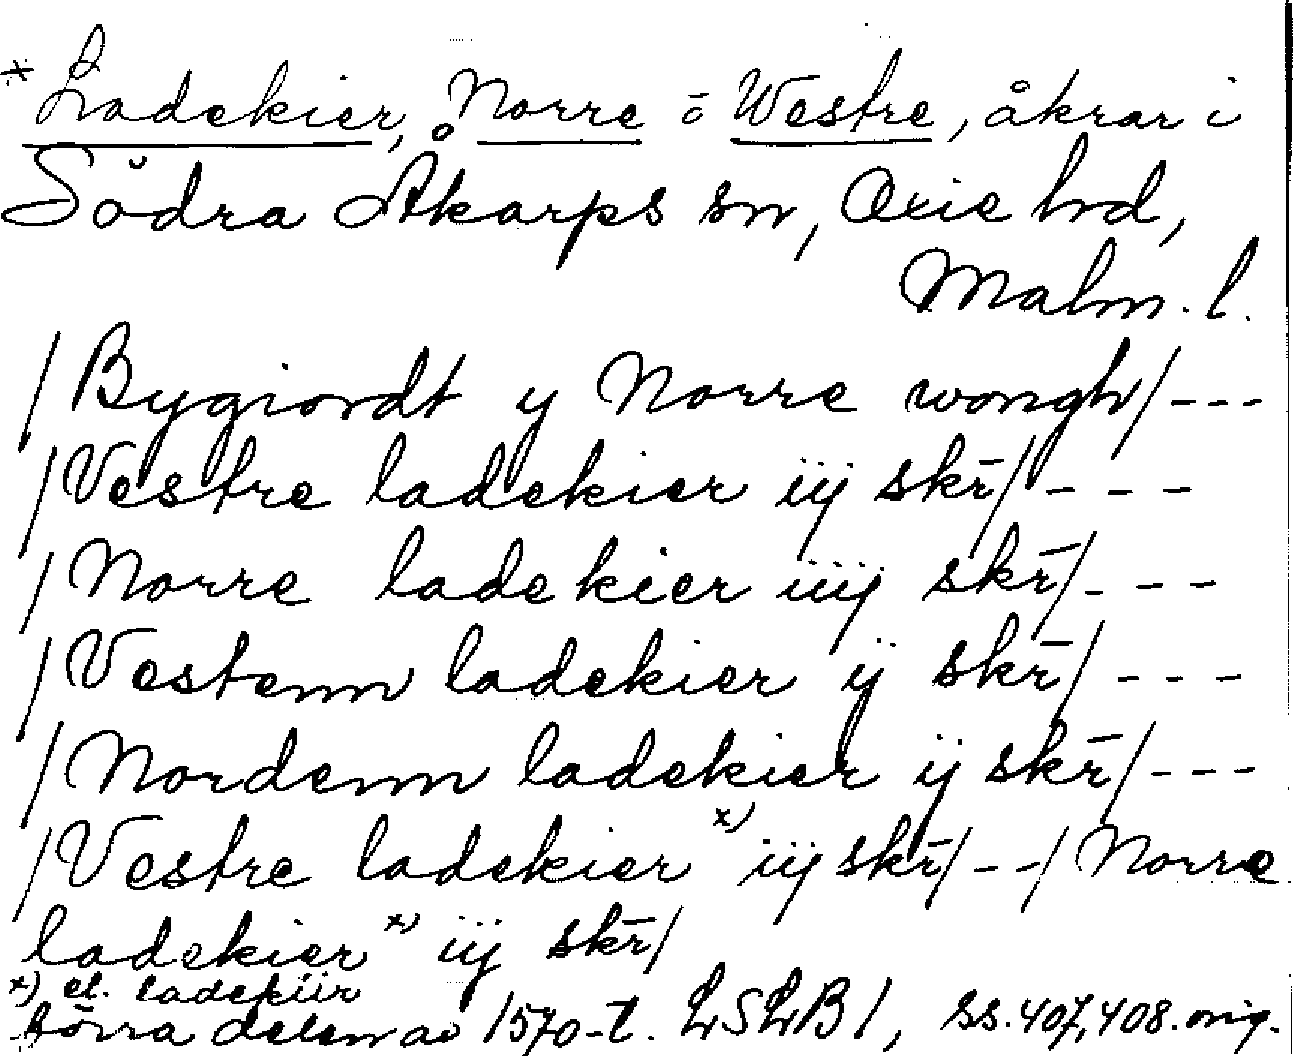 * Ladekier, Norre o Westre, åkrar i
Södra Åkarps sn, Oxie hd,
Malm. l.
/Bygiordt y Norre wongh/---
/Vestre ladekier iij skr̄/---
/Norre ladekier iiij skr̄/---
/Vestenn ladekier ij skr̄/---
/Nordenn ladekier ij skr̄/---
/Vestre ladekier x) iij skr̄/--/Norre
ladekier x) iij skr̄/
x) el. ladekiir
förra delen av 1570-t. LSLB 1, ss. 407, 408. orig.